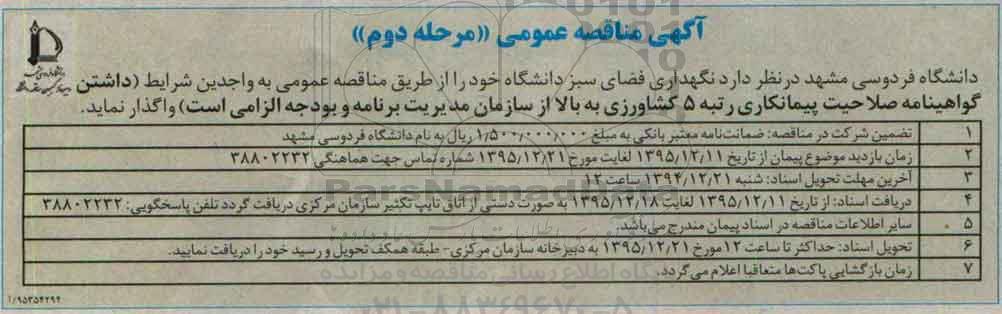 آگهی مناقصه عمومی «مرحله دوم»
دانشگاه فردوسی مشهد در نظر دارد نگهداری فضای سبز دانشگاه خود را از طریق مناقصه عمومی به واجدین شرایط (داشتن
گواهینامه صلاحیت پیمانکاری رتبه ۵ کشاورزی به بالا از سازمان مدیریت برنامه و بودجه الزامی است) واگذار نماید.
۱ تضمین شرکت در مناقصه: ضمانت‌نامه معتبر بانکی به مبلغ ۱/۵۰۰/۰۰۰/۰۰۰ ریال به نام دانشگاه فردوسی مشهد
۲ زمان بازدید موضوع پیمان از تاریخ ۱۳۹۵/۱۲/۱۱ لغایت مورخ ۱۳۹۵/۱۲/۲۱ شماره تماس جهت هماهنگی ۳۸۸۰۲۲۳۲
۳ آخرین مهلت تحویل اسناد: شنبه ۱۳۹۴/۱۲/۲۱ ساعت ۱۲
۴ دریافت اسناد: از تاریخ ۱۳۹۵/۱۲/۱۱ لغایت ۱۳۹۵/۱۲/۱۸ به صورت دستی از اتاق تایپ تکثیر سازمان مرکزی دریافت گردد تلفن پاسخگویی: ۳۸۸۰۲۲۳۲
۵ سایر اطلاعات مناقصه در اسناد پیمان مندرج می‌باشد.
۶ تحویل اسناد: حداکثر تا ساعت ۱۲ مورخ ۱۳۹۵/۱۲/۲۱ به دبیرخانه سازمان مرکزی- طبقه همکف تحویل و رسید خود را دریافت نمایید.
۷ زمان بازگشایی پاکت‌ها متعاقبا اعلام می‌گردد.
ParsNamadData
پایگاه اطلاع رسانی مناقصه و مزایده
۰۲۱-۸۸۳۴۹۶۷۰-۵
۱/۹۵۳۵۴۲۹۴